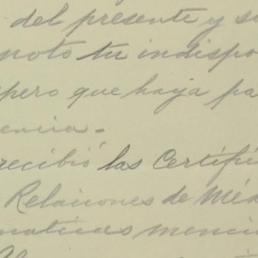 del presente y s
noto tu indispo
spero que haya pa
encia.-
recibió las Certifi
Relaciones de Méx
maticas menci